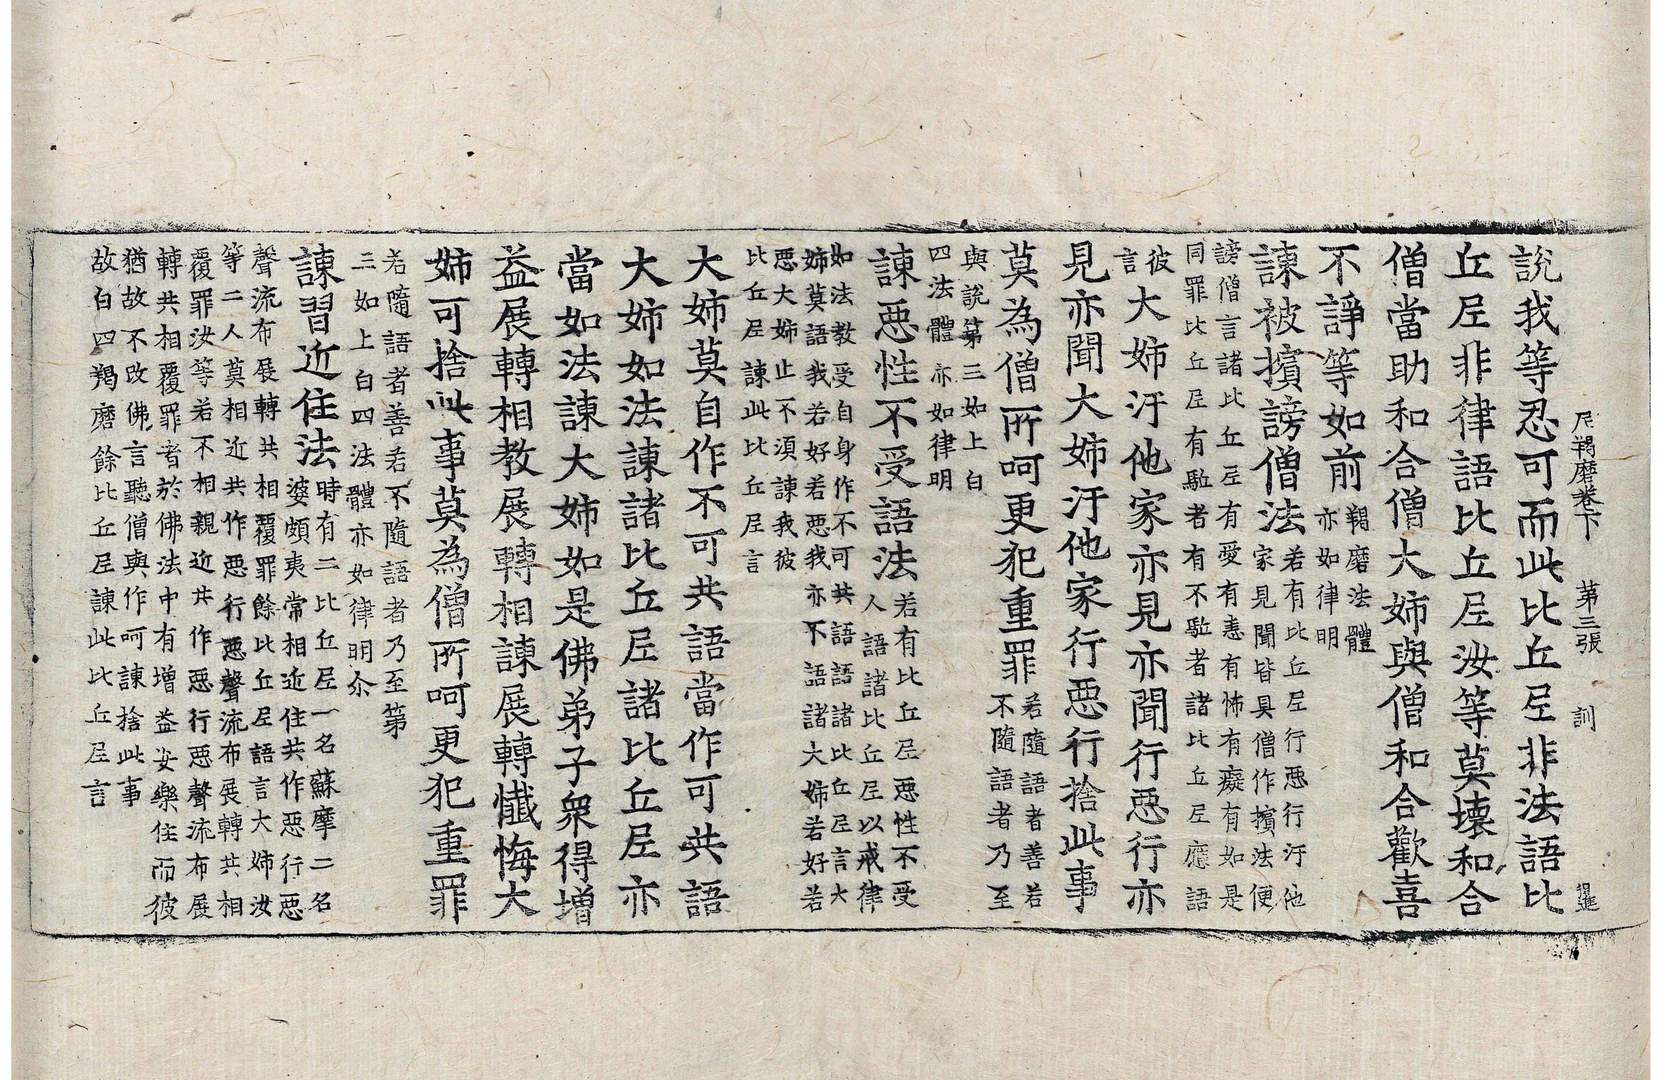 尼羯磨卷下　第三張　訓　暹
說我等忍可而此比丘尼非法語比
丘尼非律語比丘尼汝等莫壞和合
僧當助和合僧大姉與僧和合歡喜
不諍等如前 羯磨法體
亦如律明
諫被擯謗僧法 若有比丘尼行惡行汙他
家見聞皆具僧作擯法便
謗僧言諸比丘尼有愛有恚有怖有癡有如是
同罪比丘尼有駈者有不駈者諸比丘尼應語
彼
言
大姉汙他家亦見亦聞行惡行亦
見亦聞大姉汙他家行惡行捨此事
莫為僧所呵更犯重罪 若隨語者善若
不隨語者乃至
與說第三如上白
四法體亦如律明
諫惡性不受語法 若有比丘尼惡性不受
人語諸比丘尼以戒律
如法教受自身作不可共語語諸比丘尼言大
姉莫語我若好若惡我亦不語諸大姉若好若
惡大姉止不須諫我彼
比丘尼諫此比丘尼言
大姉莫自作不可共語當作可共語
大姉如法諫諸比丘尼諸比丘尼亦
當如法諫大姉如是佛弟子衆得增
益展轉相教展轉相諫展轉懺悔大
姉可捨此事莫為僧所呵更犯重罪
若隨語者善若不隨語者乃至第
三如上白四法體亦如律明尒
諫習近住法 時有二比丘尼一名蘇摩二名
婆頗夷常相近住共作惡行惡
聲流布展轉共相覆罪餘比丘尼語言大姉汝
等二人莫相近共作惡行惡聲流布展轉共相
覆罪汝等若不相親近共作惡行惡聲流布展
轉共相覆罪者於佛法中有增益安樂住而彼
猶故不改佛言聽僧與作呵諫捨此事
故白四羯磨餘比丘尼諫此比丘尼言